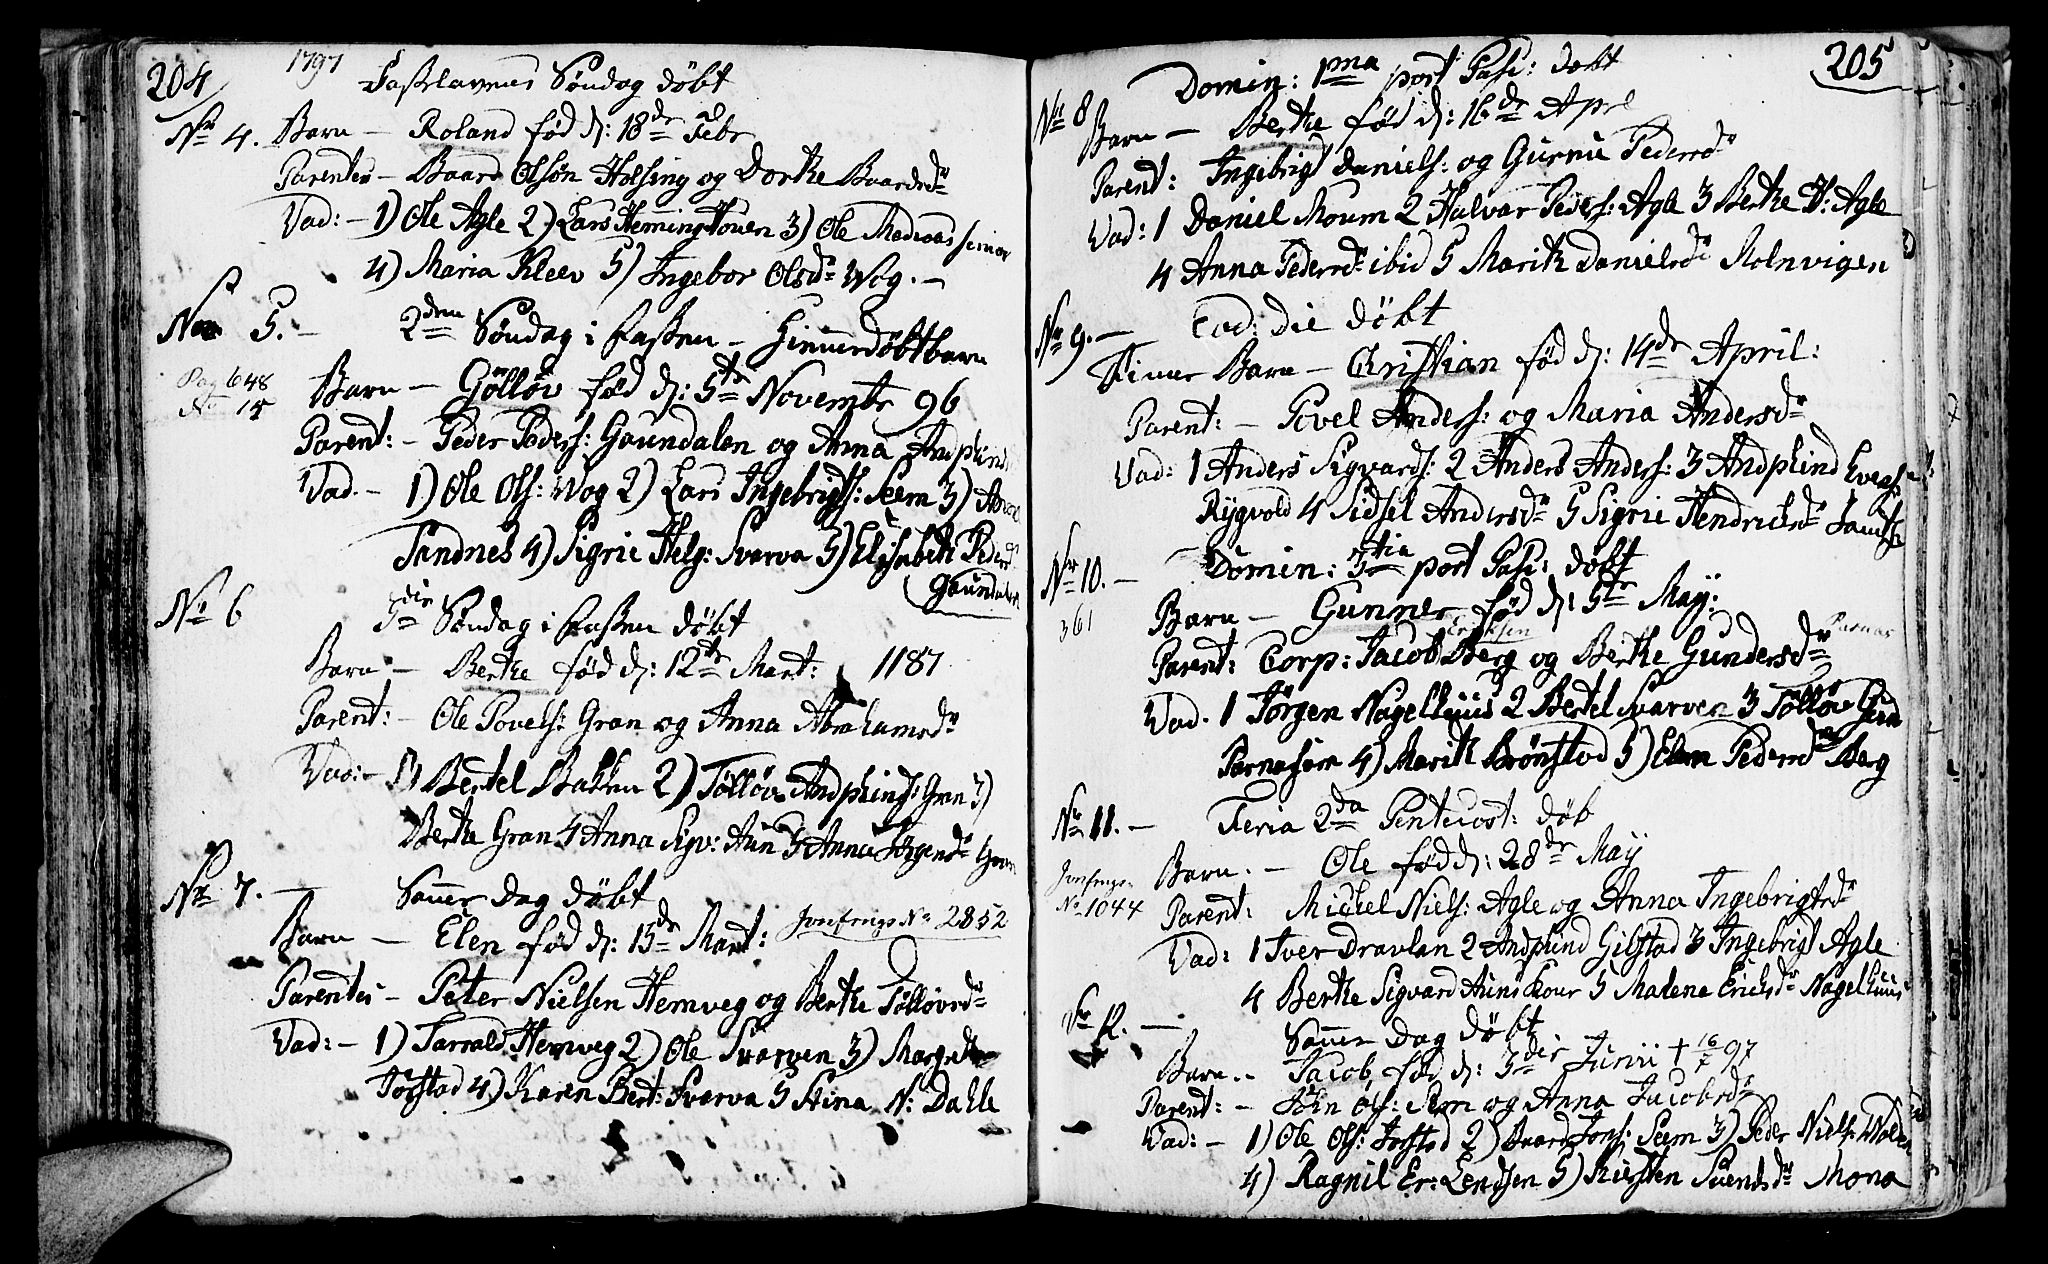 204
1797
Fastelavens Søndag döbt
No 4. Barn – Roland föd d: 18de Febr
Parentes – Baard Olsön Holsing og Dorthe Baardsdr
Vad: – 1) Ole Agle 2) Lars Heming Houen 3) Ole Mediaas senior
4) Maria Kleev 5) Ingebor Olsdr Wog. –
No 5. – 2den Söndag i Fasten – Hiemmedöbt barn
Pag 648
No 15
Barn – Gölløv föd d: 5te Novembr 96
Parent: – Peder Peders: Gaundalen og Anna Andphinds
Vad. – 1) Ole Ols: Wog 2) Lars Ingebrigts: Seem 3)
Sandnes 4) Sigrie Helg: Svarva 5) Elisabeth Peders
Gaundalen
No 6 5te Søndag i Fasten döbt
Barn – Berthe föd d: 12te Mart: 1187
Parent: – Ole Povels: Gran og Anna Abrahamsdr
Vad: – 1) Bertel Bakken 2) Tølløv Andphinds: Gran 3)
Berthe Gran 4 Anna Sigv: Aun 5 Anna Jörgensdr Gran
No 7. – Samer Dag döbt
Barn – Elen föd d: 15de Mart: Jvnfrings No 2852
Parentes – Peter Nielsen Hemveg og Berthe Tølløvsdr
Vad: – 1) Tarrald Hemveg 2) Ole Svarven 3) Margrethe
Jørstad 4) Karen Bert: Svarva 5 Stina N: Dahle
205
Domin: 1ma post Pasc: döbt
No 8 Barn – Berthe föd d: 16de Apr
Parent: Ingebrigt Daniels: og Gurnie Pedersdr
Vad: 1 Daniel Moum 2 Halvar Peders: Agle 3 Berthe H: Agle
4 Anna Pedersdr ibid 5 Marith Danielsdr Holmvigen
No 9. – Eod: die döbt
Tvinner Barn – Christian föd d: 14de April:
Parent: – Povel Anders: og Maria Andersdr
Vad: 1 Anders Sigvards: 2 Anders Anders: 3 Andphind
Rygvold 4 Sidsel Andersdr 5 Sigrie Hendrichsdr
No 10. – Domin: 3tia post Pasc: döbt
361
Barn – Gunner föd d: 5te May:
Ericksen
Parnas
Parent: Corp: Jacob Berg og Berthe Gundersdr
Vad. 1 Jörgen Nagelhuus 2 Bertel Svarven 3 Tølløv
Parnasöm 4) Marith Brönstad 5) Elen Pedersdr Berg
No 11. – Feria 2da Pentecost: döb
Jvnfrings
No 1044
Barn. – Ole föd d: 28de May
Parent: Michel Niels: Agle og Anna Ingebrigtsdr
Vad: 1 Iver Dravlan 2 Andphind Gilstad 3 Ingebrigt Agle
4 Berthe Sigvard Auns Kone 5 Malene Ericksdr Nagelhuus
No 12. – Samer Dag döbt
Barn. – Jacob, föd d: 3die Junii † 16/7 97
Parent: – John Ols: Sem og Anna Jacobsdr
Vad: – 1) Ole Ols: Jorstad 2) Baard Jons: Seem 3) Peder Niels: Wolden
4) Ragnil Er: Lendsen 5) Kirsten Svendsdr Mona